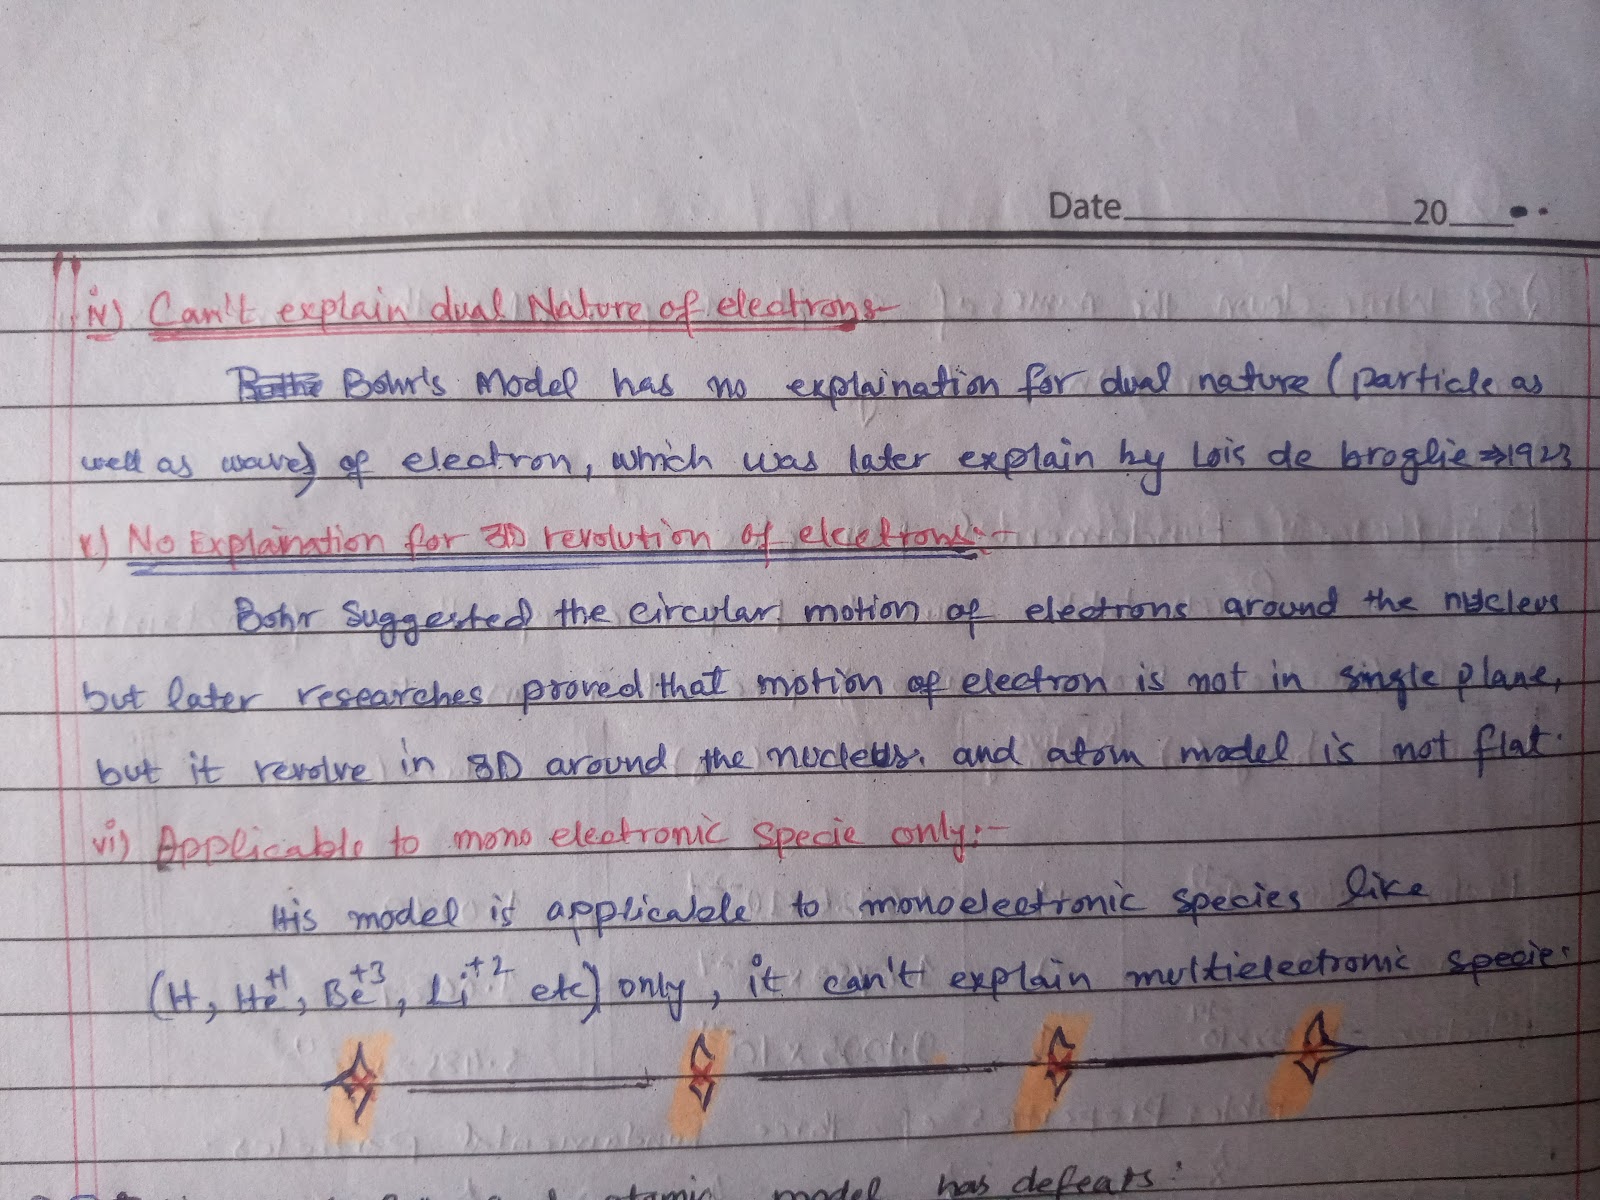 Date 20
iv) Can't explain dual Nature of electrons-
Bohr's Model has no explaination for dual nature (particle as
well as wave) of electron, which was later explain by Lois de broglie⇒1923
v) No Explaination for 3D revolution of electrons:-
Bohr Suggested the circular motion of electrons around the nucleus
but later researches proved that motion of electron is not in single plane,
but it revolve in 3D around the nucleus. and atom model is not flat.
vi) Applicable to mono electronic specie only:-
His model is applicable to monoelectronic species like
(H, He⁺¹, Be⁺³, Li⁺² etc) only, it can't explain multielectronic specie.
model has defeats: